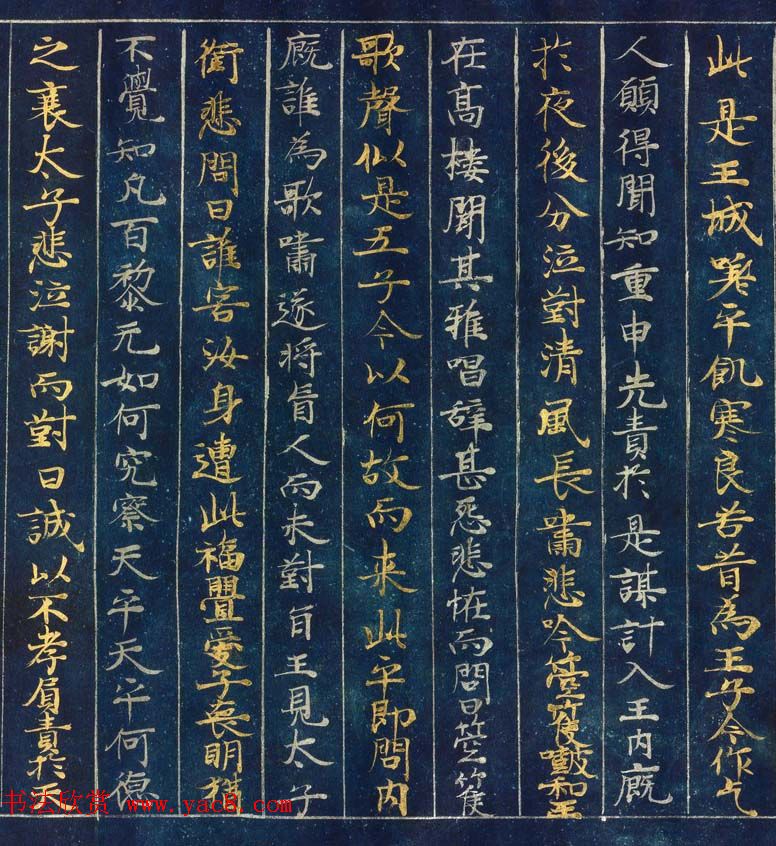 此是王城嗟乎飢寒良苦昔為王子今作乞
人願得聞知重申先責於是謀計入王內廐
於夜後分泣對清風長嘯悲吟箜篌鼓和王
在高樓聞其雅唱辞甚怨悲恠而問曰箜篌
歌聲似是五子今以何故而来此乎即問內
廐誰為歌嘯遂将盲人而来對旨王見太子
銜悲問曰誰害汝身遭此禍舋愛子喪明猶
不覺知凡百黎元如何究察天乎天乎何德
之襄太子悲泣謝而對曰誠以不孝眉責於天
书法欣赏 www.yac8.com